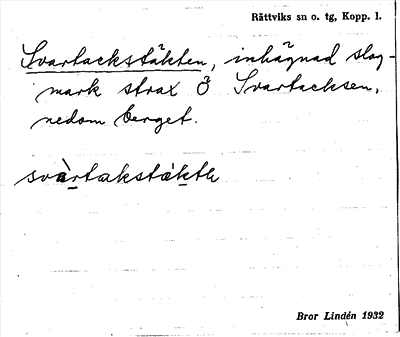 Rättviks sn o. tg, Kopp. l.
Svartackstäkten, inhägnad slog-
mark strax Ö Svartacksen,
nedom berget.
svàrtakstäkte
Bror Lindén 1932